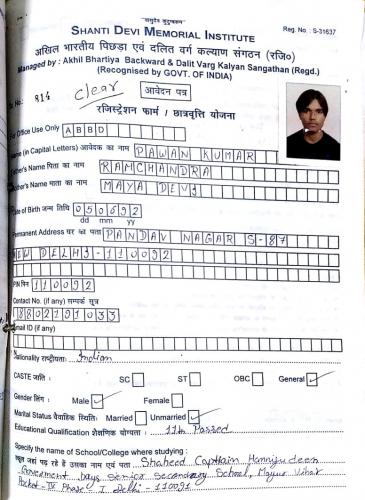 "वसुधैव कुटुम्बकम्"
SHANTI DEVI MEMORIAL INSTITUTE
Reg. No. : S-31637
अखिल भारतीय पिछड़ा एवं दलित वर्ग कल्याण संगठन (रजि०)
Managed by : Akhil Bhartiya Backward & Dalit Varg Kalyan Sangathan (Regd.)
(Recognised by GOVT. OF INDIA)
No. 814 Clear आवेदन पत्र
रजिस्ट्रेशन फार्म / छात्रवृत्ति योजना
For Office Use Only ABBD
Name (in Capital Letters) आवेदक का नाम PAWAN KUMAR
Father's Name पिता का नाम RAMCHANDRA
Mother's Name माता का नाम MAYA DEVI
Date of Birth जन्म तिथि 050692
dd mm yy
Permanent Address घर का पता PANDAV NAGAR S-87
NEW DELHI-110092
PIN पिन 110092
Contact No. (if any) सम्पर्क सूत्र
8802191033
Email ID (if any)
Nationality राष्ट्रीयता: Indian
CASTE जाति : SC ST OBC General ✓
Gender लिंग : Male ✓ Female
Marital Status वैवाहिक स्थिति: Married Unmarried ✓
Educational Qualification शैक्षणिक योग्यता : 11th Passed
Specify the name of School/College where studying :
स्कूल जहां पढ़ रहे हैं उसका नाम एवं पता : Shaheed Capttain Hamijudeen
Government boys Senior Secondary School, Mayur Vihar
Pocket-IV Phase I delhi - 110091